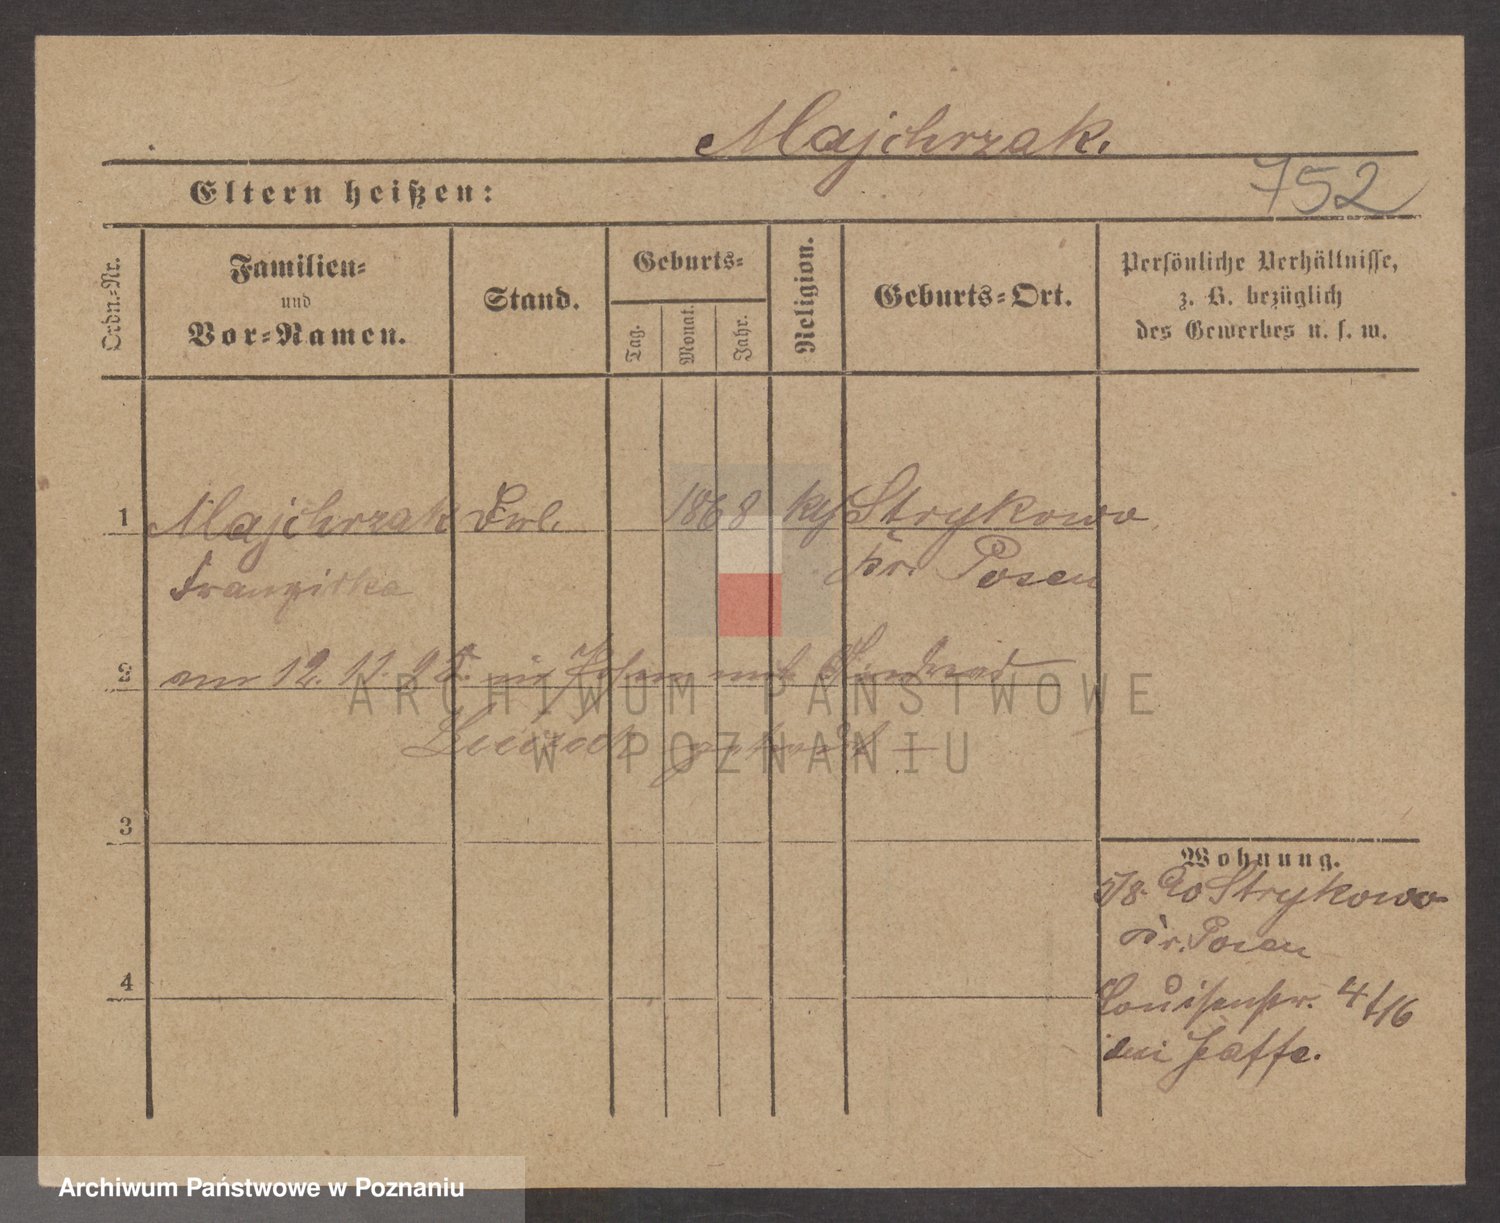 Majchrzak.
752
Eltern heißen:
Ordn.-Nr.
Familien-
und
Vor-Namen.
Stand.
Geburts-
Tag.
Monat.
Jahr.
Religion.
Geburts-Ort.
Persönliche Verhältnisse,
z. B. bezüglich
des Gewerbes u. s. w.
1 Majchrzak Frl. 1868 kh Strykowo
Franziska Kr. Posen
2 am 12. 11. in Posen mit
3
4
Wohnung.
5/8. 90 Strykowo
Kr. Posen
Louisenstr. 4/16
bei Jaffe.
ARCHIWUM PAŃSTWOWE
W POZNANIU
Archiwum Państwowe w Poznaniu